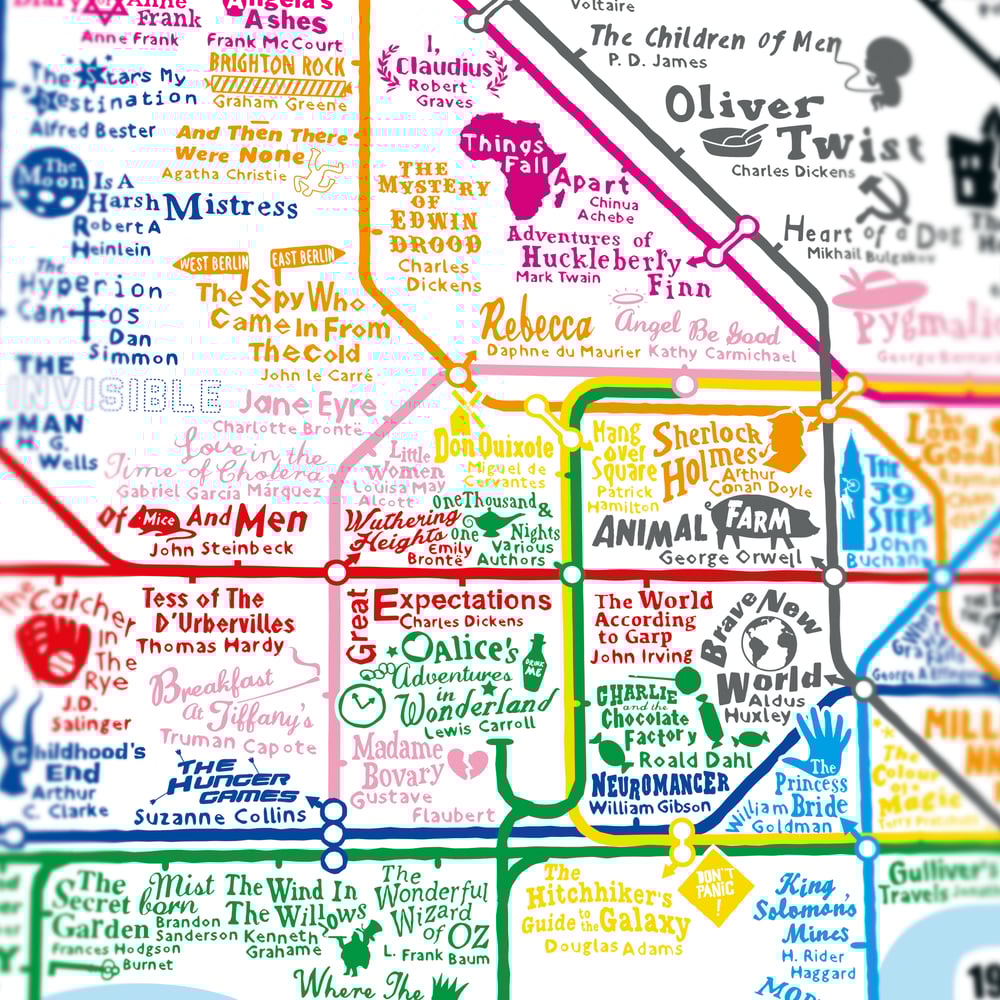 Diary of Anne
Frank
Anne Frank
Angela's
Ashes
Frank McCourt
BRIGHTON ROCK
Graham Greene
I,
Claudius
Robert
Graves
Voltaire
The Children of Men
P. D. James
Oliver
Twist
Charles Dickens
The Stars My
Destination
Alfred Bester
And Then There
Were None
Agatha Christie
THE
MYSTERY
OF
EDWIN
DROOD
Charles
Dickens
Things
Fall
Apart
Chinua
Achebe
The
Moon Is A
Harsh Mistress
Robert A
Heinlein
Adventures of
Huckleberry
Finn
Mark Twain
Heart of a Dog
Mikhail Bulgakov
WEST BERLIN
EAST BERLIN
The Spy Who
Came In From
The Cold
John le Carré
The
Hyperion
Cantos
Dan
Simmon
Rebecca
Daphne du Maurier
Angel Be Good
Kathy Carmichael
THE
INVISIBLE
MAN
H. G.
Wells
Jane Eyre
Charlotte Brontë
Love in the
Time of Cholera
Gabriel García Márquez
Little
Women
Louisa May
Alcott
Don Quixote
Miguel de
Cervantes
Hang
over
Square
Patrick
Hamilton
Sherlock
Holmes
Arthur
Conan Doyle
THE
39
STEPS
John
Buchan
The
Long
Of Mice And Men
John Steinbeck
Wuthering
Heights
Emily
Brontë
One Thousand &
One Nights
Various
Authors
ANIMAL FARM
George Orwell
The Catcher
In
The
Rye
J.D.
Salinger
Tess of The
D'Urbervilles
Thomas Hardy
Great Expectations
Charles Dickens
The World
According
to Garp
John Irving
Brave New
World
Aldus
Huxley
Breakfast
At Tiffany's
Truman Capote
Alice's
Adventures
in
Wonderland
Lewis Carroll
DRINK
ME
CHARLIE
and the
Chocolate
Factory
Roald Dahl
Childhood's
End
Arthur
C. Clarke
THE
HUNGER
GAMES
Suzanne Collins
Madame
Bovary
Gustave
Flaubert
NEUROMANCER
William Gibson
The
Princess
Bride
William
Goldman
The
Colour
of
Magic
Terry Pratchett
The
Secret
Garden
Frances Hodgson
Burnet
Mist
born
Brandon
Sanderson
The Wind In
The Willows
Kenneth
Grahame
The
Wonderful
Wizard
of OZ
L. Frank Baum
The
Hitchhiker's
Guide to the Galaxy
Douglas Adams
DON'T
PANIC
!
King
Solomon's
Mines
H. Rider
Haggard
Gulliver's
Travels
Where The